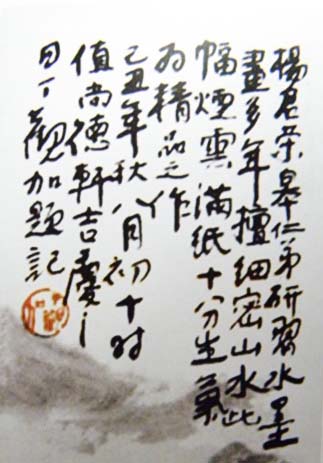 楊君榮皋仁弟研習水墨
畫多年擅細密山水此
幅煙雲滿紙十分生氣
为精品之作
己丑年秋八月初十时
值尚德軒吉慶之
日丁觀加題記